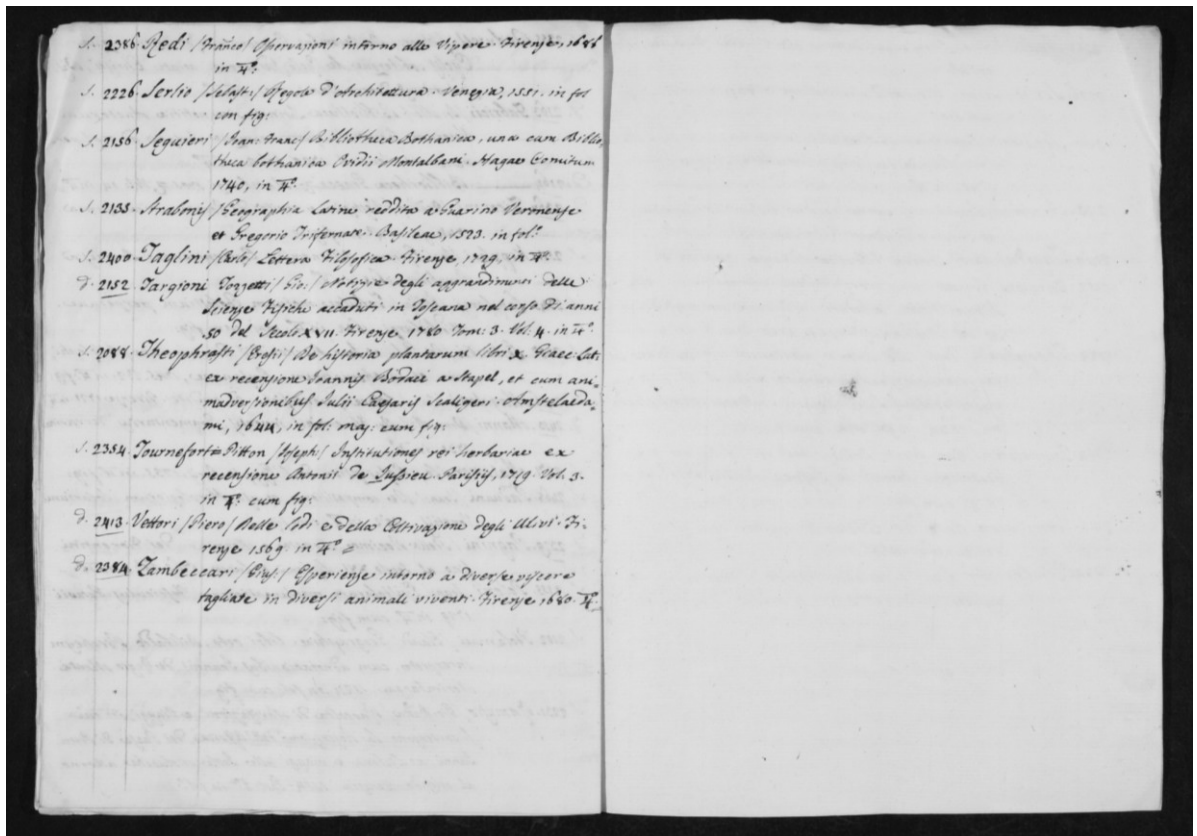 s. 2386. Redi /Franco/ Osservazioni intorno alle Vipere. Firenze, 1686
in 4.º
s. 2226. Serlio /Sebast:/ Regole d'Architettura. Venezia, 1551. in fol
con fig:
s. 2156. Seguieri /Joan: Franc:/ Bibliotheca Bothanica, una cum Biblio
theca bothanica Ovidii Montalbani. Hagae Comitum
1740, in 4.º
s. 2133. Strabonis /Geographia Latine reddita a Guarino Veronense
et Gregorio Trifernate. Basileae, 1523. in fol.º
s. 2400. Taglini /Carlo/ Lettere Filosofice. Firenze, 1729, in 4.º
d. 2152. Targioni Tozzetti /Gio:/ Notizie degli aggrandimenti delle
Scienze Fisiche accaduti in Toscana nel corso di anni
60 del Secolo XVII. Firenze, 1780. Tom: 3. Vol. 4. in 4.º
s. 2088. Theophrasti /Eresii/ De historia plantarum libri X. Graec: lat:
ex recensione Joannis Bodaei a Stapel, et cum ani=
madversionibus Julii Caesaris Scaligeri. Amstelaeda-
mi, 1644, in fol: maj: cum fig:
s. 2354. Tournefort Pitton /Joseph:/ Institutiones rei herbariae ex
recensione Antonii de Jussieu. Parisiis, 1719. Vol. 3.
in 4.º cum fig:
d. 2413. Vettori /Piero/ Delle lodi e della Coltivazione degli Ulivi. Fi-
renze 1569. in 4.º
d. 2384. Zambeccari /Gius:/ Esperienze intorno a diverse viscere
tagliate in diversi animali viventi. Firenze 1680. 4.º